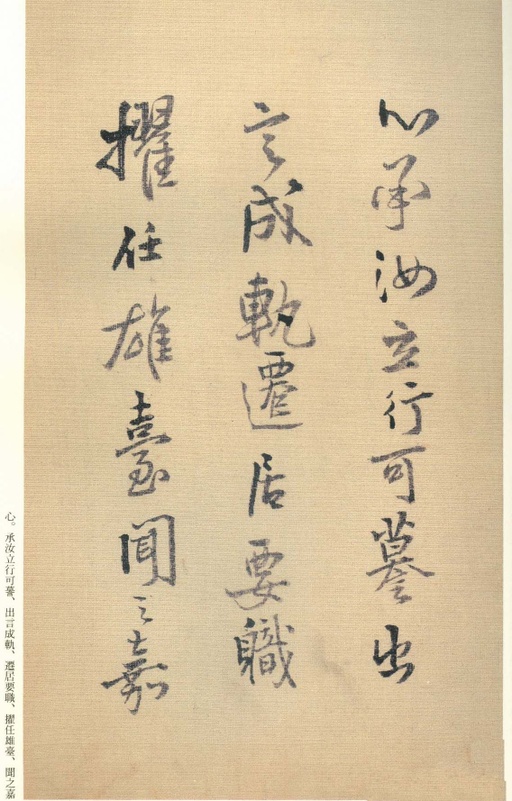 心承汝立行可謩出
言成軌遷居要軄
擢任雄臺聞之嘉
心。承汝立行可謩、出言成軌、遷居要職、擢任雄臺、聞之嘉